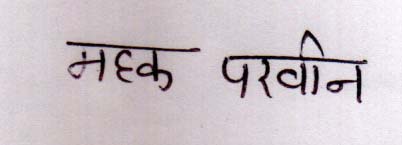 महक परवीन